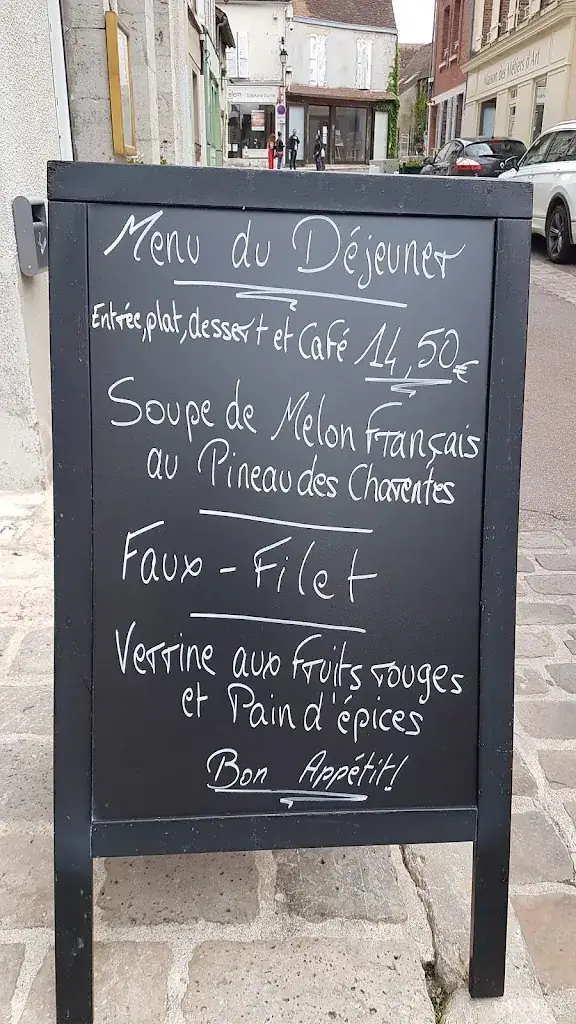 Maison des Métiers d'Art
Menu du Déjeuner
Entrée, plat, dessert et Café 14,50€
Soupe de Melon Français
au Pineau des Charentes
Faux - Filet
Verrine aux fruits rouges
et Pain d'épices
Bon Appétit!